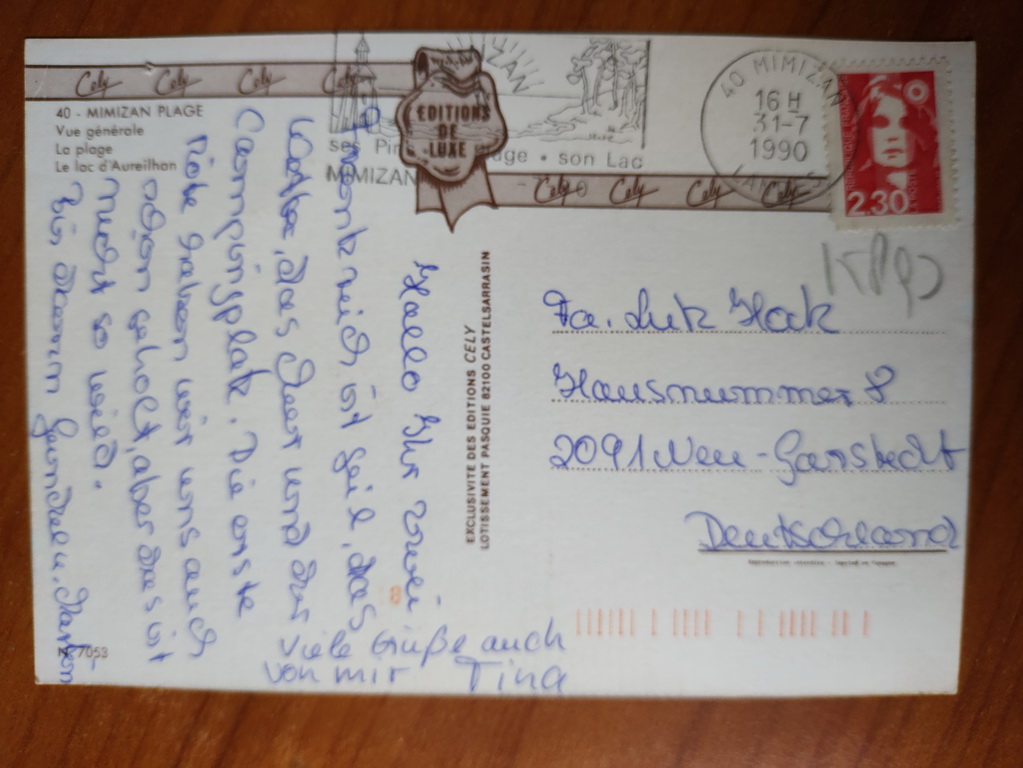 Cely Cely Cely Cely
40 - MIMIZAN PLAGE
Vue générale
La plage
Le lac d'Aureilhan
EDITIONS
DE
LUXE
MIZAN
ses Pins
Plage • son Lac
MIMIZAN
Cely Cely Cely Cely
40 MIMIZAN
16 H
31-7
1990
LANDES
2.30
Hallo Ihr zwei
Frankreich ist geil, das
Wetter, das Meer und der
Campingplatz. Die erste
Pöte haben wir uns auch
schon geholt, aber das ist
nicht so wild.
Bis dann
u. Martin
Viele Grüße auch
von mir Tina
EXCLUSIVITE DES EDITIONS CELY
LOTISSEMENT PASQUIE 82100 CASTELSARRASIN
Fa. Lutz Hock
Hausnummer 8
2091 Neu-Garstedt
Deutschland
N. 7053